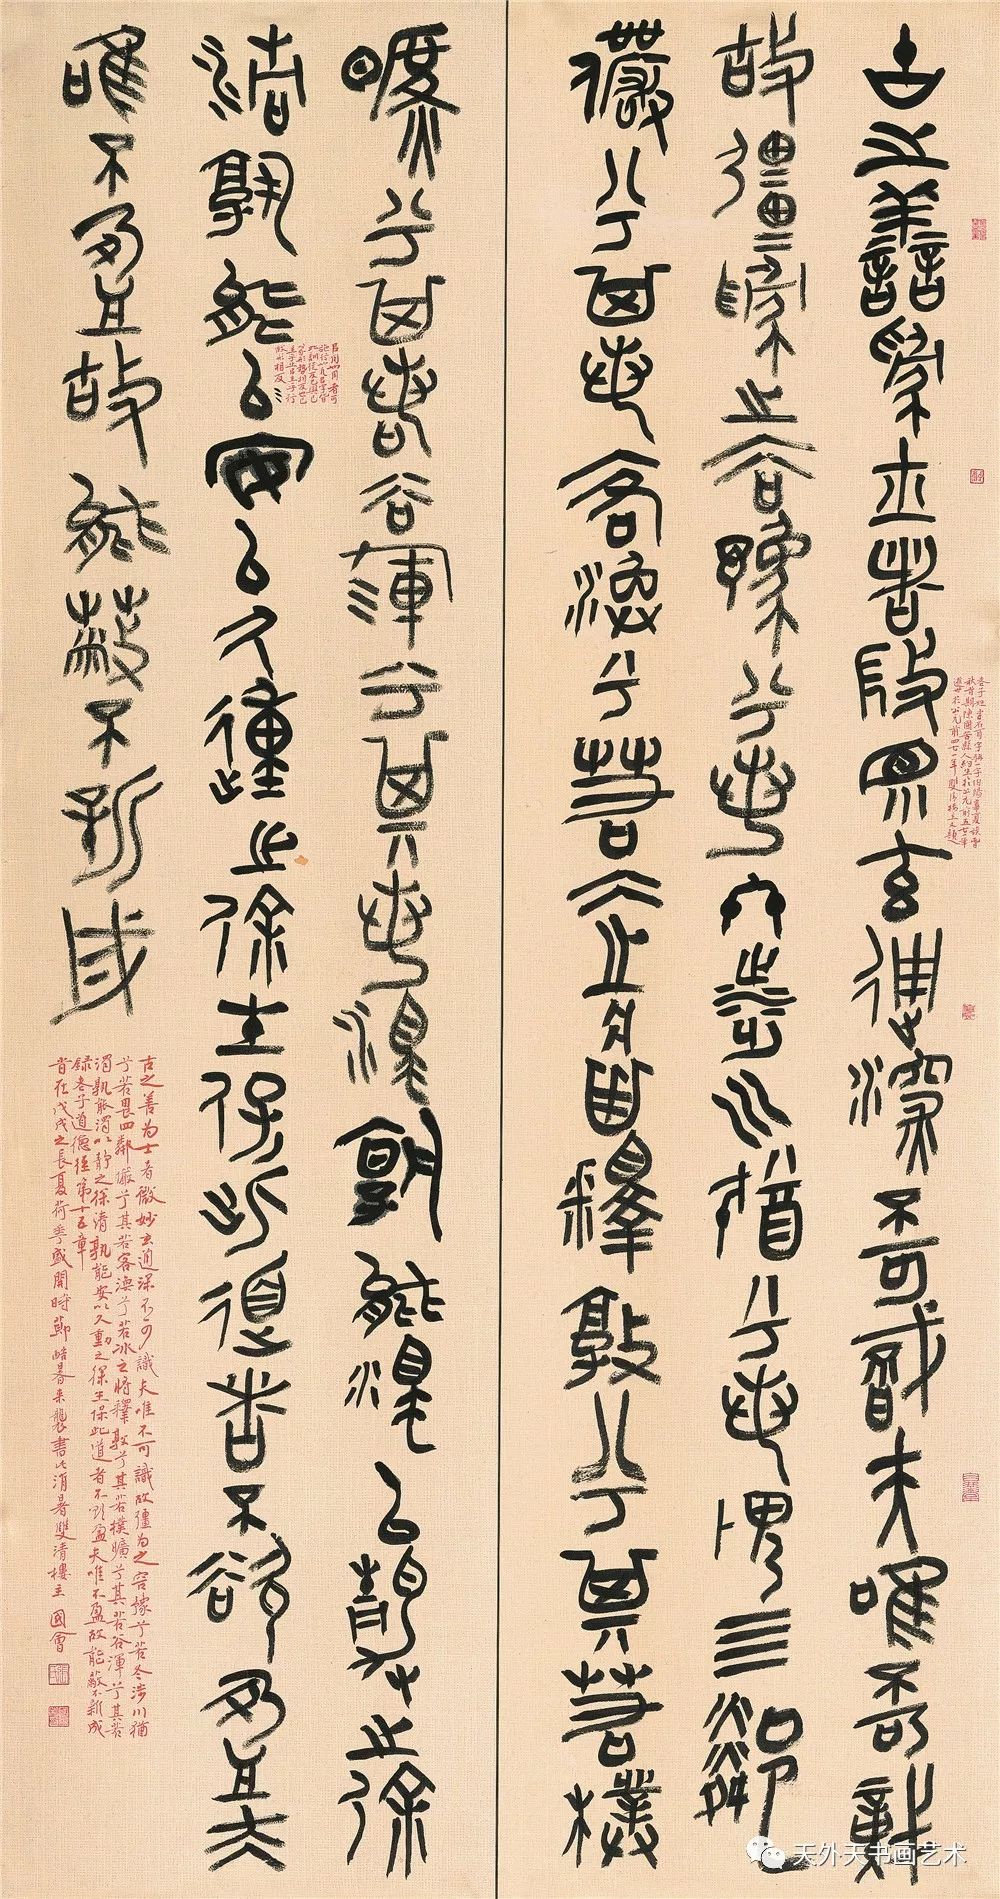 古之善為士者微眇玄通深不可識夫唯不可識
故彊為之容豫兮若冬涉川猶兮若畏四鄰
儼兮其若客渙兮若冰之將釋敦兮其若樸
曠兮其若谷渾兮其若濁孰能濁以靜之徐
清孰能安以久動之徐生保此道者不欲盈夫
唯不盈故能蔽不新成
古之善为士者微妙玄通深不可識夫唯不可識故彊为之容豫兮若冬涉川猶
兮若畏四鄰儼兮其若客渙兮若冰之將釋敦兮其若樸曠兮其若谷渾兮其若
濁孰能濁以靜之徐清孰能安以久動之徐生保此道者不欲盈夫唯不盈故能蔽不新成
録老子道德經第十五章
旹在戊戌之長夏荷花盛開時節酷暑来襲書此消暑雙清樓主國會
天外天书画艺术